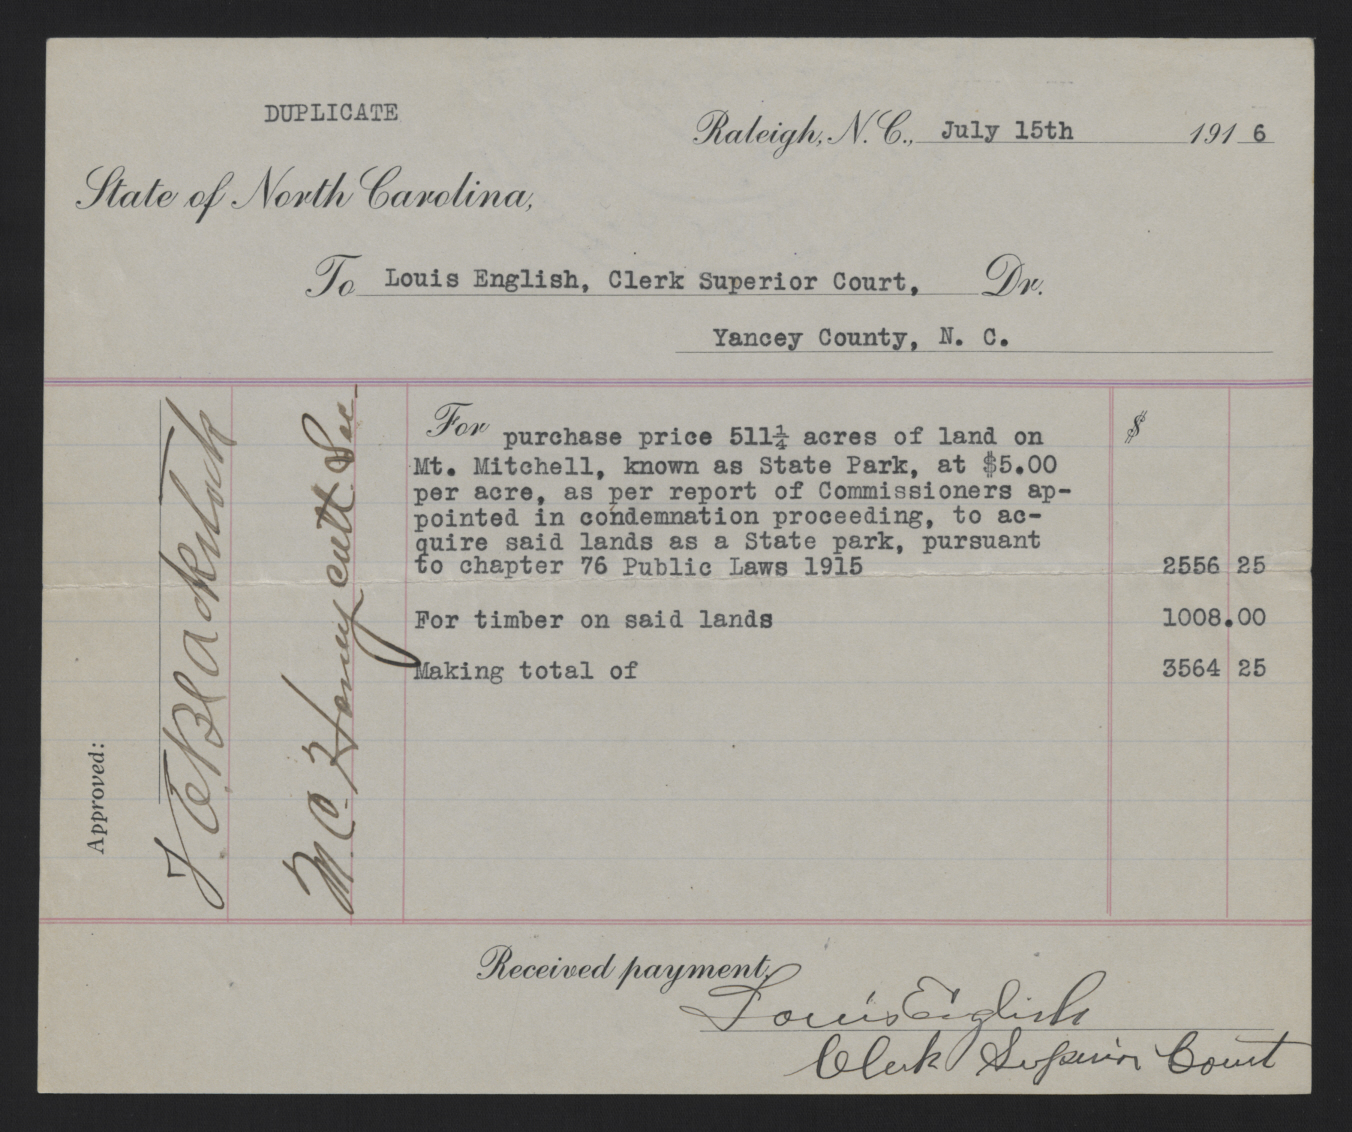 DUPLICATE
Raleigh, N. C., July 15th 1916
State of North Carolina,
To Louis English, Clerk Superior Court, Dr.
Yancey County, N. C.
For purchase price 511¼ acres of land on $
Mt. Mitchell, known as State Park, at $5.00
per acre, as per report of Commissioners ap-
pointed in condemnation proceeding, to ac-
quire said lands as a State park, pursuant
to chapter 76 Public Laws 1915 2556 25
For timber on said lands 1008.00
Making total of 3564 25
Approved:
T. E. Blackstock
M. C. Honeycutt Sec.
Received payment,
Louis English
Clerk Superior Court